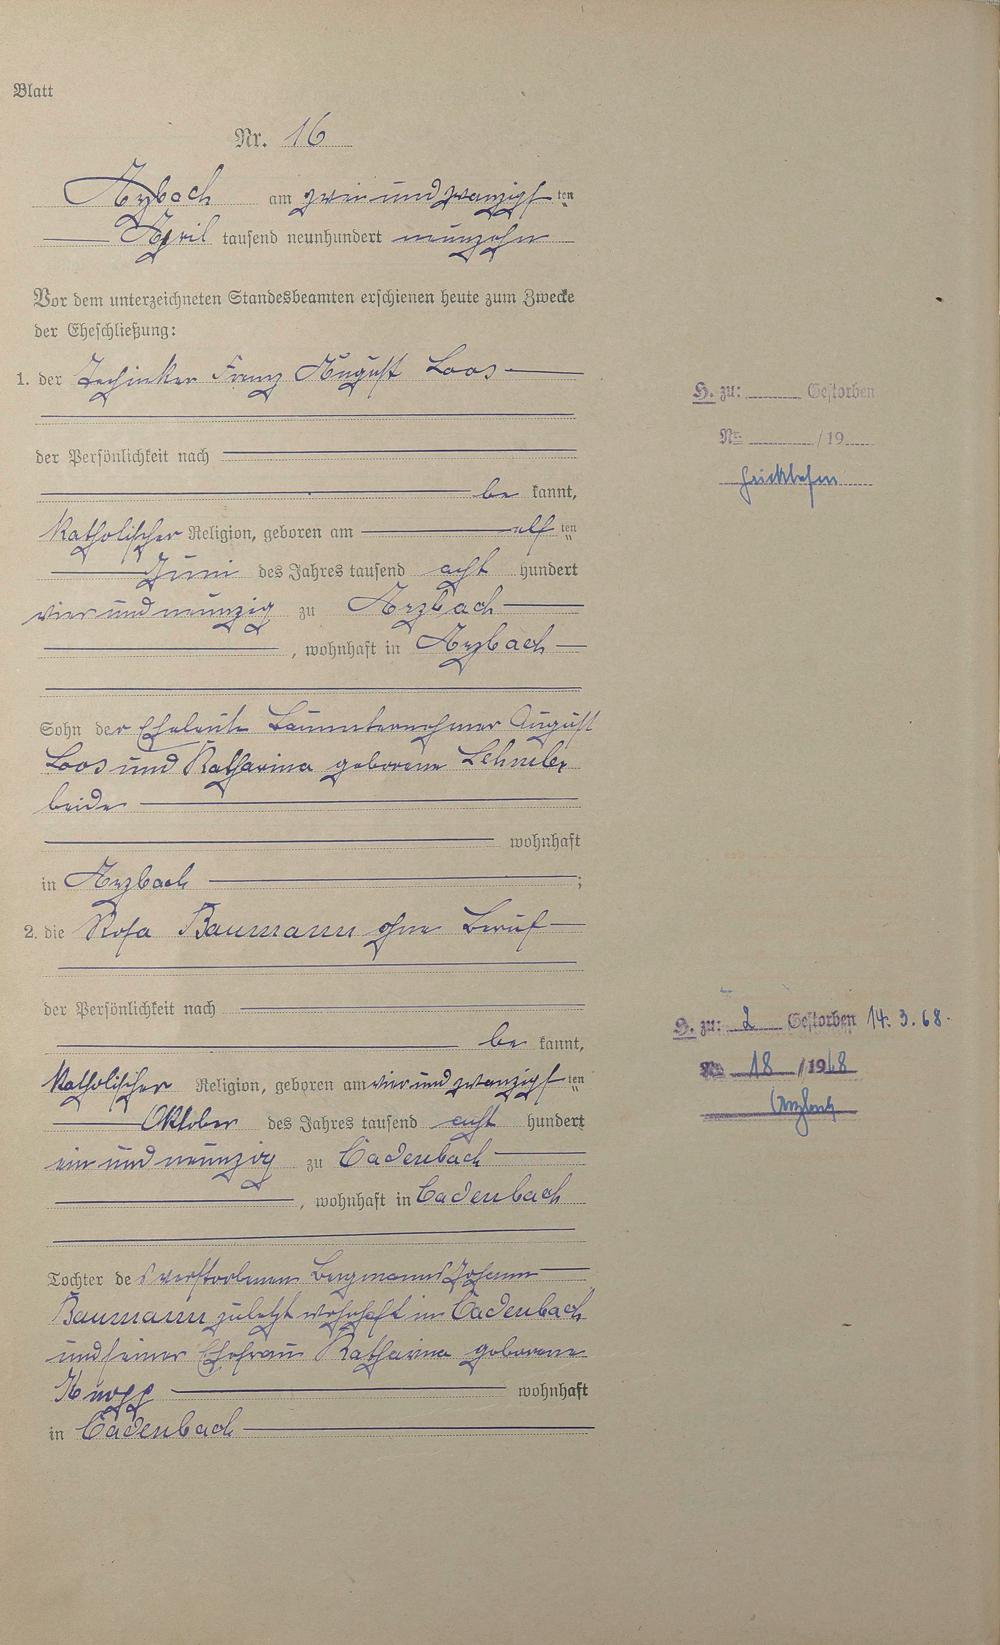 Blatt
Nr. 16
Arzbach am zwei und zwanzigsten
April tausend neunhundert neunzehn
Vor dem unterzeichneten Standesbeamten erschienen heute zum Zwecke
der Eheschließung:
1. der Techniker Franz August Loos
der Persönlichkeit nach
be kannt,
katholischer Religion, geboren am elften
Juni des Jahres tausend acht hundert
vier und neunzig zu Arzbach
, wohnhaft in Arzbach
Sohn der Eheleute Bauunternehmer August
Loos und Katharina geborene
beide
wohnhaft
in Arzbach ;
2. die Rosa Baumann ohne Beruf
der Persönlichkeit nach
be kannt,
katholischer Religion, geboren am vier und zwanzigsten
Oktober des Jahres tausend acht hundert
ein und neunzig zu Cadenbach
, wohnhaft in Cadenbach
Tochter des verstorbenen Bergmanns Johann
Baumann zuletzt wohnhaft in Cadenbach
und seiner Ehefrau Katharina geborene
Knopp wohnhaft
in Cadenbach
H. zu: Gestorben
Nr. /19
Frickhofen
H. zu: 2 Gestorben 14.3.68.
Nr. 18 /1968
Arzbach